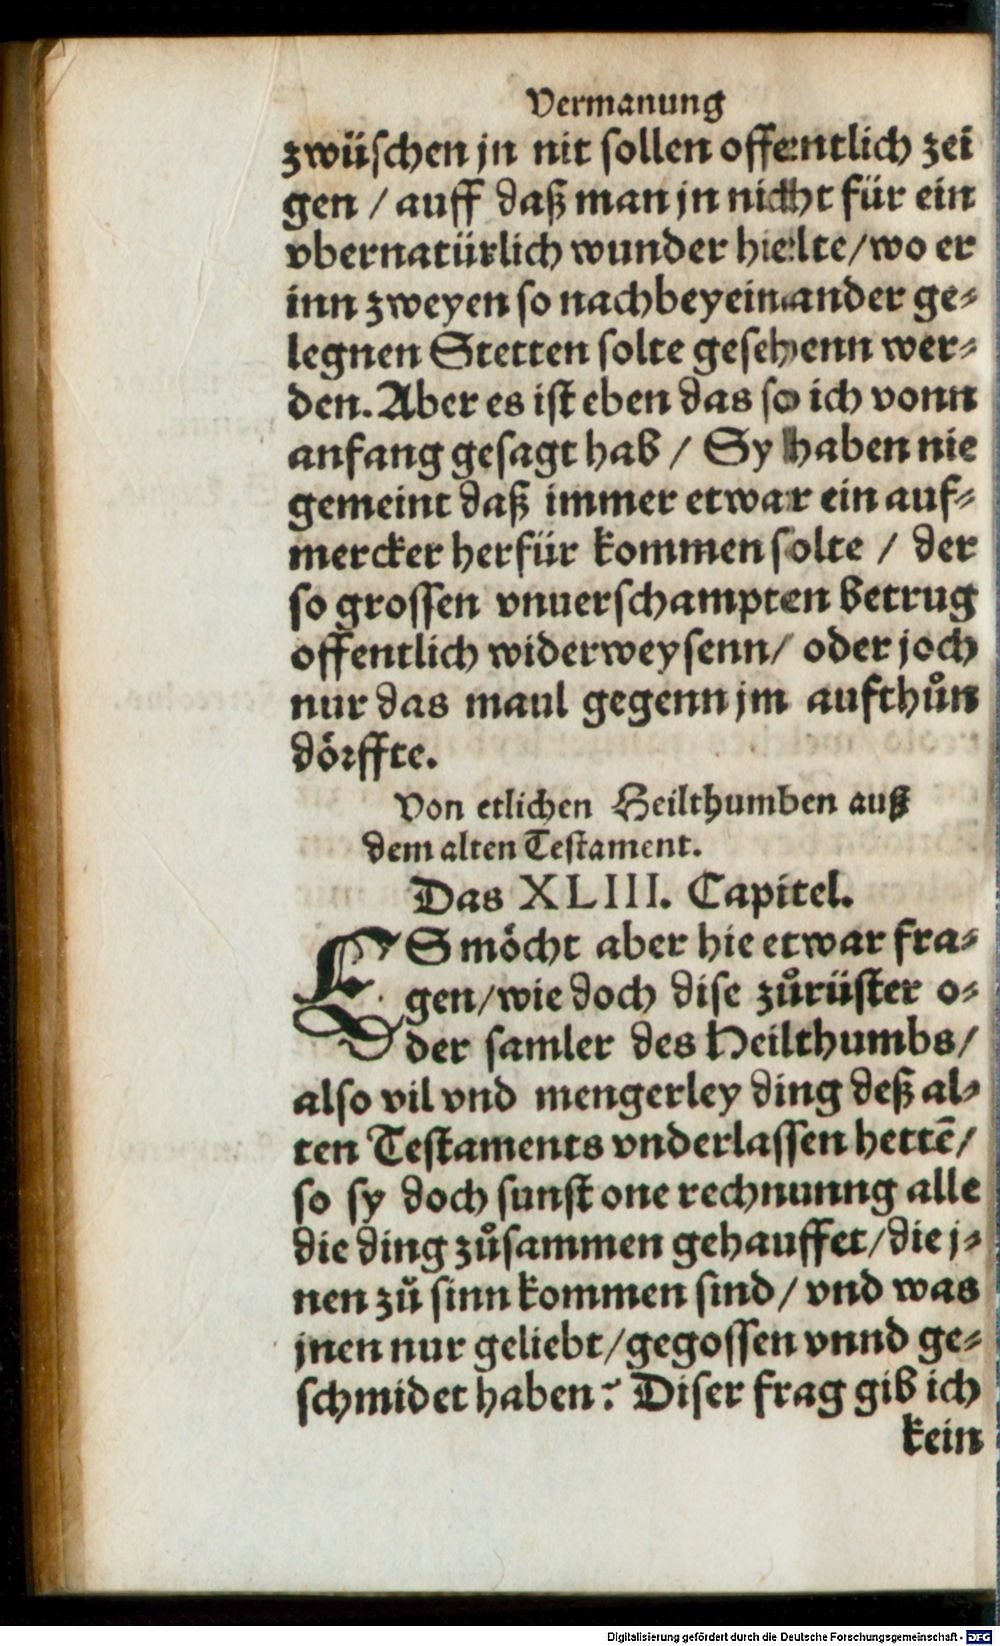 Vermanung
zwüschen jn nit sollen offentlich zei
gen / auff daß man jn nicht für ein
vbernatürlich wunder hielte / wo er
inn zweyen so nach bey einander ge⸗
legnen Stetten solte gesehenn wer⸗
den. Aber es ist eben das so ich vonn
anfang gesagt hab / Sy haben nie
gemeint daß immer etwar ein auf⸗
mercker herfür kommen solte / der
so grossen vnuerschampten betrug
offentlich widerweysenn / oder joch
nur das maul gegenn jm aufthuͦn
dörffte.
Von etlichen Heilthumben auß
dem alten Testament.
Das XLIII. Capitel.
ES möcht aber hie etwar fra⸗
gen / wie doch dise zuͦrüster o⸗
der samler des Heilthumbs /
also vil vnd mengerley ding deß al⸗
ten Testaments vnderlassen hettē /
so sy doch sunst one rechnunng alle
die ding zuͦsammen gehauffet / die j⸗
nen zuͦ sinn kommen sind / vnd was
jnen nur geliebt / gegossen vnnd ge⸗
schmidet haben? Diser frag gib ich
kein
Digitalisierung gefördert durch die Deutsche Forschungsgemeinschaft - DFG